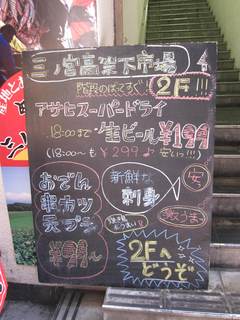 三ノ宮高架下市場
階段のぼってすぐ!
2F!!!
アサヒスーパードライ
18:00まで 生ビール ¥199
(18:00〜も ¥299♪安いっ!!)
おでん
串カツ
天ぷら
¥99〜
新鮮な
刺身
安
激うま
2Fへ
どうぞ